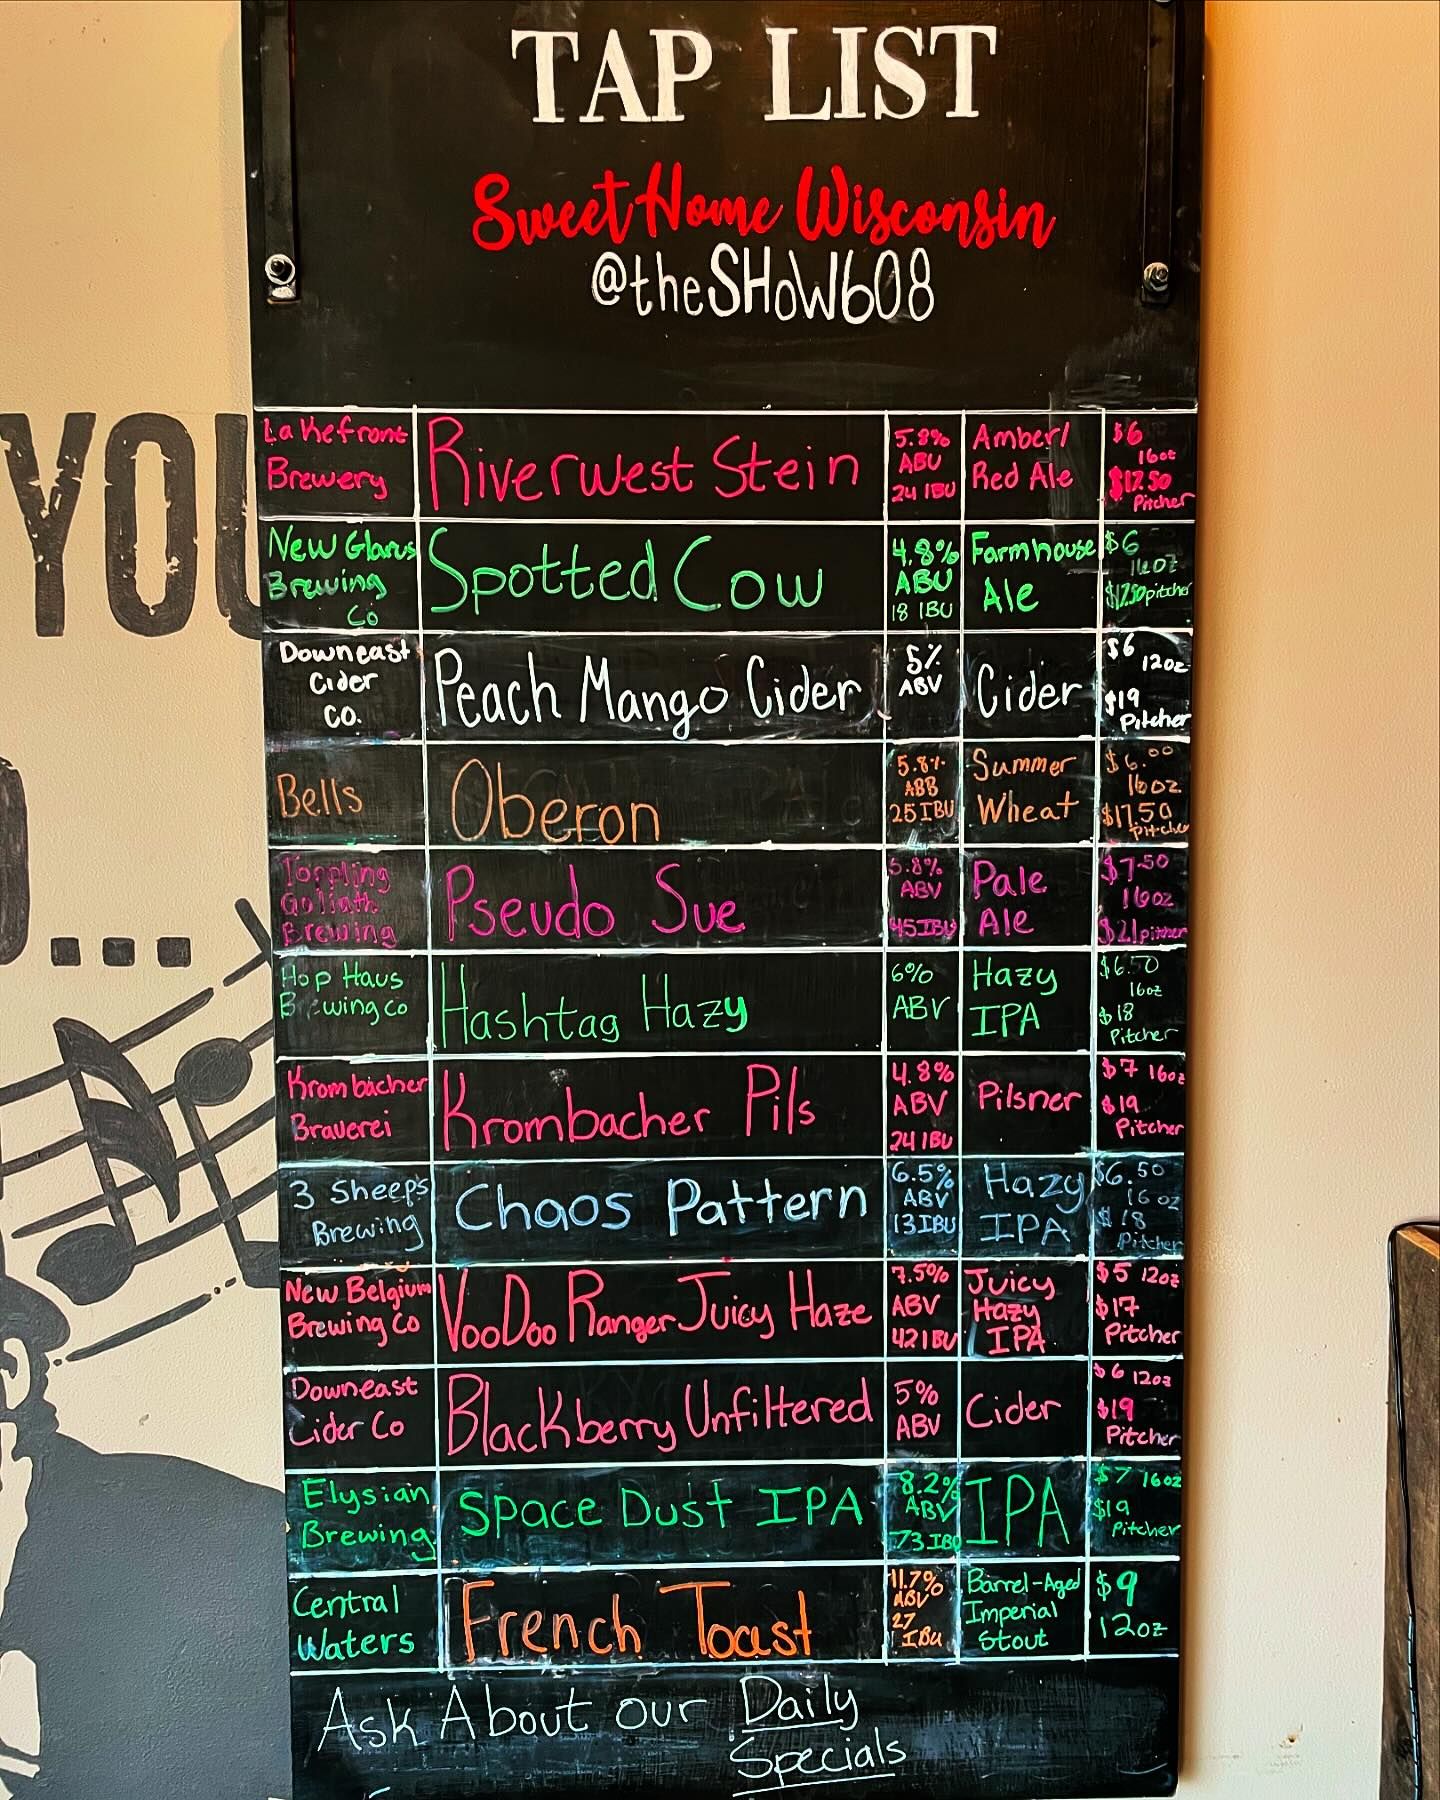 TAP LIST
Sweet Home Wisconsin
@theSHOW608
Lakefront
Brewery
Riverwest Stein
5.8%
ABU
24 IBU
Amber/
Red Ale
$6
16oz
$17.50
Pitcher
New Glarus
Brewing
Co
Spotted Cow
4.8%
ABU
18 IBU
Farmhouse
Ale
$6
16oz
$17.50 pitcher
Downeast
Cider
Co.
Peach Mango Cider
5%
ABV
Cider
$6
12oz
$19
Pitcher
Bells
Oberon
5.8%
ABB
25IBU
Summer
Wheat
$6.00
16oz
$17.50
Pitcher
Toppling
Goliath
Brewing
Pseudo Sue
5.8%
ABV
45IBU
Pale
Ale
$7.50
16oz
$21 pitcher
Hop Haus
Brewing Co
Hashtag Hazy
6%
ABV
Hazy
IPA
$6.50
16oz
$18
Pitcher
Krombacher
Brauerei
Krombacher Pils
4.8%
ABV
24 IBU
Pilsner
$7 16oz
$19
Pitcher
3 Sheeps
Brewing
Chaos Pattern
6.5%
ABV
13IBU
Hazy
IPA
$6.50
16oz
$18
Pitcher
New Belgium
Brewing Co
VooDoo Ranger Juicy Haze
7.5%
ABV
42IBU
Juicy
Hazy
IPA
$5 12oz
$17
Pitcher
Downeast
Cider Co
Blackberry Unfiltered
5%
ABV
Cider
$6 12oz
$19
Pitcher
Elysian
Brewing
Space Dust IPA
8.2%
ABV
73 IBU
IPA
$7 16oz
$19
Pitcher
Central
Waters
French Toast
11.7%
ABV
27
IBU
Barrel-Aged
Imperial
Stout
$9
12oz
Ask About our Daily
Specials
YOU
...